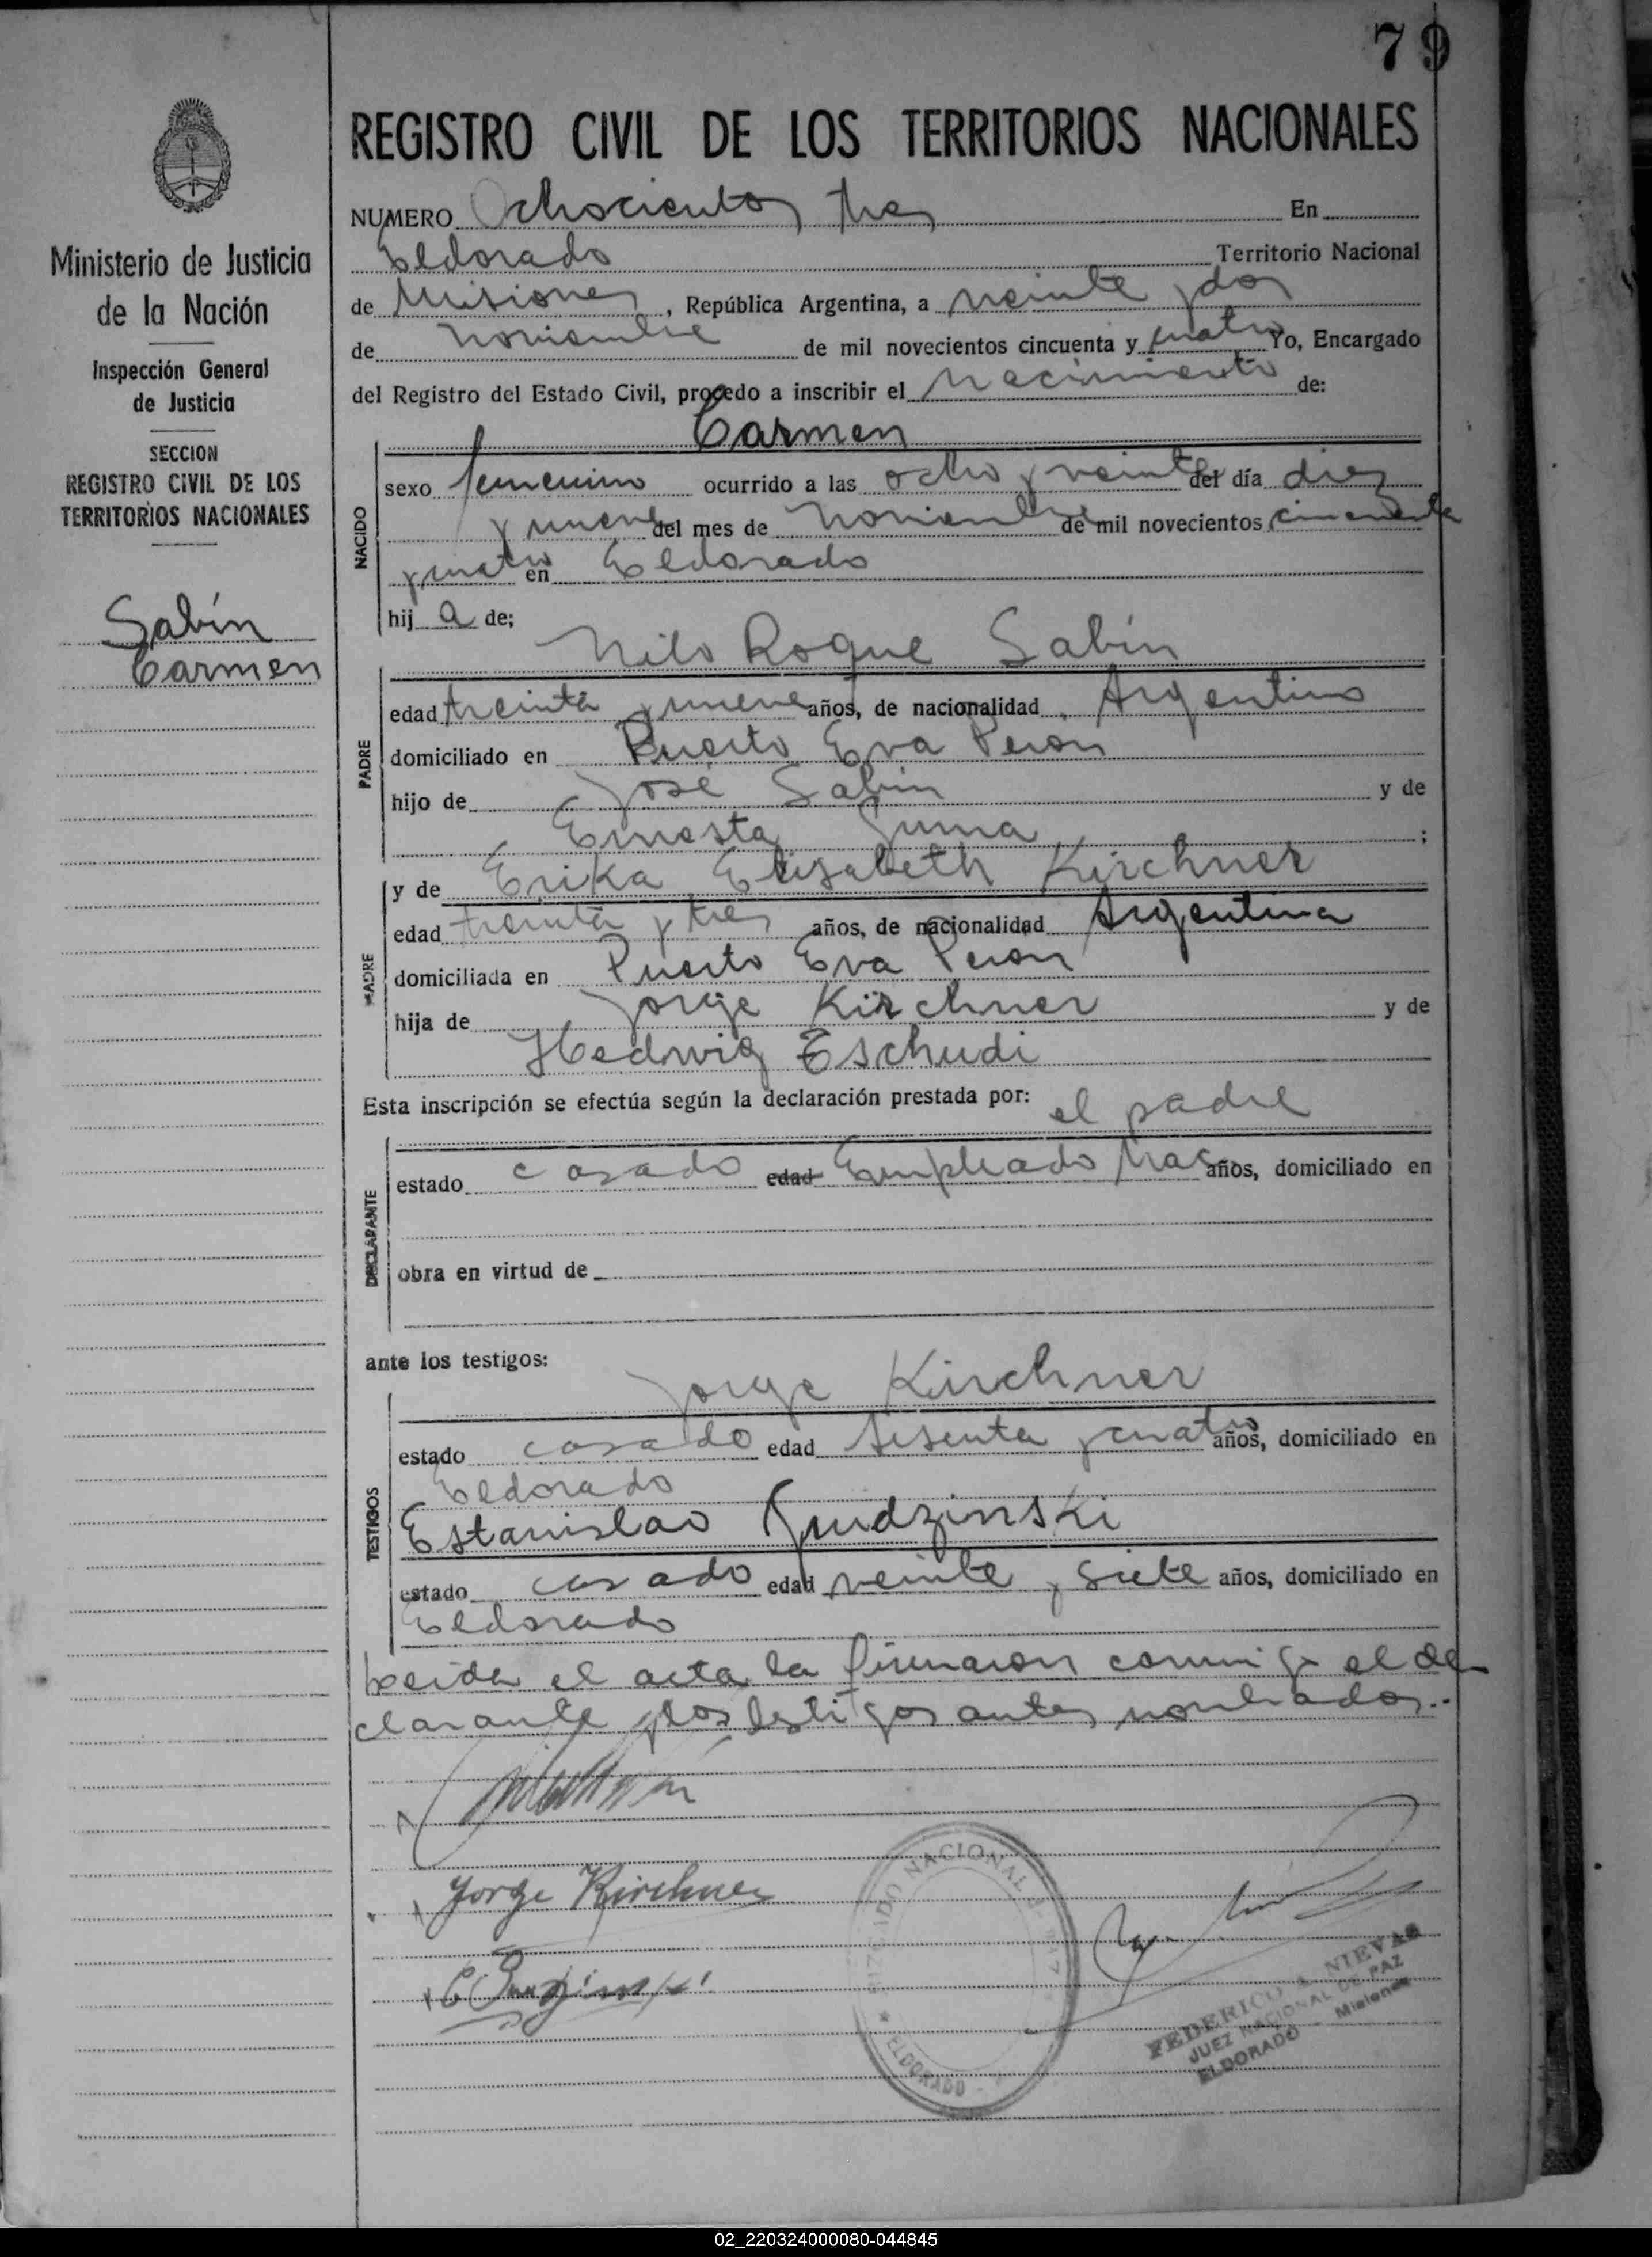 79
REGISTRO CIVIL DE LOS TERRITORIOS NACIONALES
NUMERO Ochocientos tres En
Eldorado Territorio Nacional
de Misiones, República Argentina, a veinte y dos
de noviembre de mil novecientos cincuenta y cuatro Yo, Encargado
del Registro del Estado Civil, procedo a inscribir el Nacimiento de:
Carmen
NACIDO
sexo femenino ocurrido a las ocho y veinte del día diez
y nueve del mes de Noviembre de mil novecientos cincuenta
y cuatro en Eldorado
hija de;
Nilo Roque Sabín
PADRE
edad treinta y nueve años, de nacionalidad Argentino
domiciliado en Puerto Eva Peron
hijo de José Sabin y de
Ernesta ;
y de Erika Elisabeth Kirchner
MADRE
edad treinta y tres años, de nacionalidad Argentina
domiciliada en Puerto Eva Peron
hija de Jorge Kirchner y de
Hedwig Eschudi
Esta inscripción se efectúa según la declaración prestada por: el padre
DECLARANTE
estado casado edad Empleado Nac años, domiciliado en
obra en virtud de
ante los testigos:
Jorge Kirchner
TESTIGOS
estado casado edad sesenta y cuatro años, domiciliado en
Eldorado
Estanislao Gudzinski
estado casado edad veinte y siete años, domiciliado en
Eldorado
Leida el acta la firmaron conmigo el de
clarante y los testigos antes nombrados..
Jorge Kirchner
JUZGADO NACIONAL DE PAZ
ELDORADO
FEDERICO NIEVAS
JUEZ NACIONAL DE PAZ
ELDORADO - Misiones
Ministerio de Justicia
de la Nación
Inspección General
de Justicia
SECCION
REGISTRO CIVIL DE LOS
TERRITORIOS NACIONALES
Sabín
Carmen
02_220324000080-044845